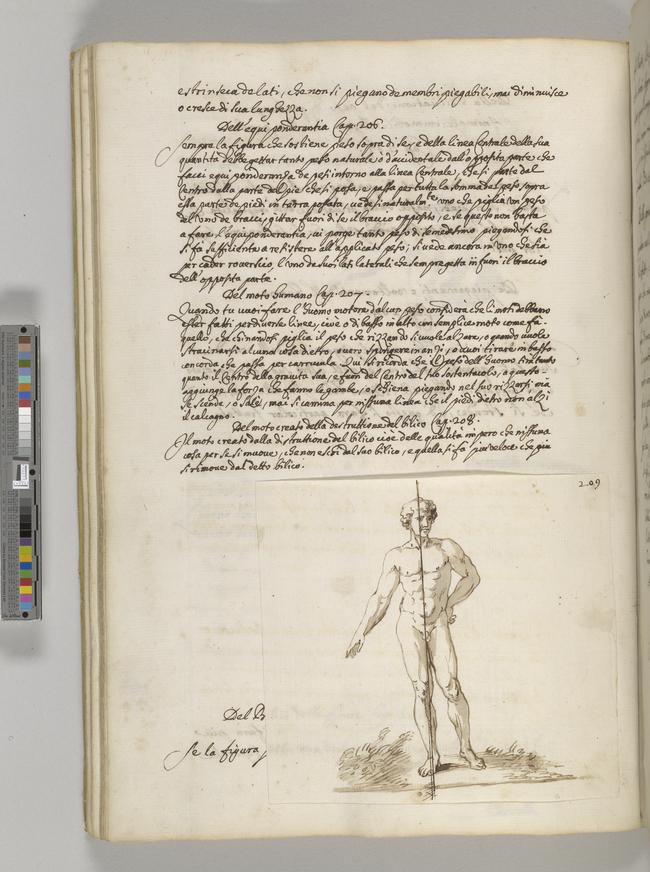 estrinseca de lati, che non si piegano de membri piegabili, mai diminuisce
o cresce di sua lunghezza.
Dell'equiponderantia Cap. 206.
Sempre la figura che sostiene peso sopra di se, e della linea Centrale della sua
quantità debbe gettar tanto peso naturale ò d'accidentale dall'opposita parte che
facci equiponderanza de pesi intorno alla linea Centrale, che si parte dal
Centro dalla parte del pie che si posa, e passa per tutta la somma del peso sopra
essa parte de piedi in terra possata, vedesi naturalmte. uno che piglia un peso
dell'uno de bracci, gittar fuori di se il braccio opposito, e se questo non basta
a fare l'equiponderantia, vi porge tanto peso di se medesimo piegandosi che
si fà sufficiente a resistere all'applicato peso; si vede ancora in uno che sia
per cader roverscio l'uno de suoi lati laterali che sempre getta in fuori il braccio
dell'opposita parte.
Del moto humano Cap. 207.
Quando tu vuoi fare l'huomo motore d'alcun peso considera che li moti debbono
esser fatti per diverse linee, cioe o di basso in alto con semplice moto come fà
quello, che chinandosi piglia il peso che rizzando si vuole alzare, o quando vuole
strascinarsi alcuna cosa dietro, overo spingere inanzi, o vuoi tirare in basso
con corda che passa per carrucula. Qui si ricorda che il peso dell'Huomo tira tanto
quanto il Centro della gravità sua, e fuori del Centro del suo sostentacolo, a questo
s'aggiunge la forza che fanno le gambe, o schiena piegando nel suo rizzarsi mà
se scende, o sale, mai si camina per nissuna linea che il piedi dietro non alzi
il calcagno.
Del moto creato della destruttione del bilico Cap. 208.
Il moto creato dalla distruttione del bilico cioè delle qualità impero che nissuna
cosa per se si muove, che non eschi dal suo bilico, e quella si fà piu veloce che piu
si rimove dal detto bilico.
209
Del
Se la figura